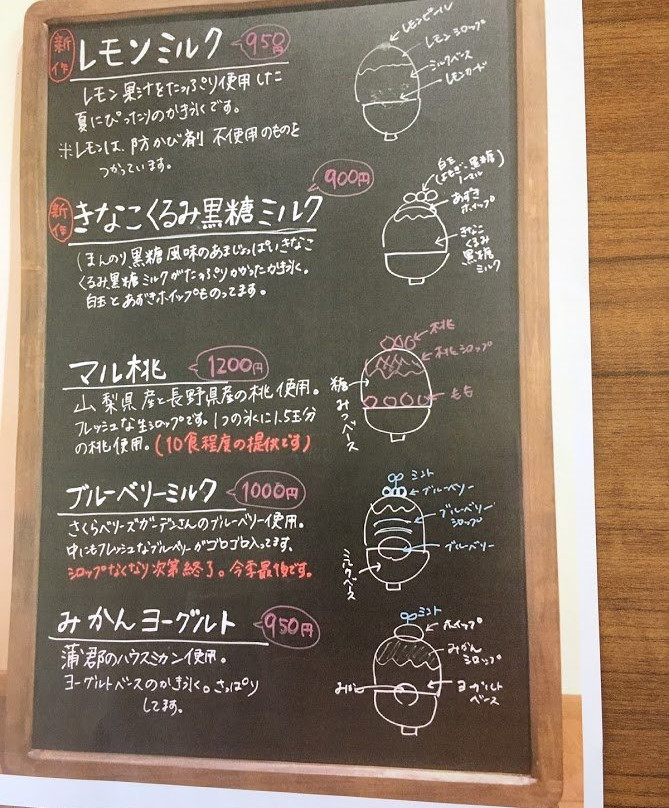 新作 レモンミルク 950円
レモン果汁をたっぷり使用した
夏にぴったりのかき氷です。
※レモンは、防かび剤 不使用のものを
つかっています。
レモンピール
レモンシロップ
ミルクベース
レモンカード
新作 きなこくるみ黒糖ミルク 900円
きなこ
くるみ黒糖ミルクがたっぷりかかったかき氷。
白玉とあずきホイップものってます。
白玉
(よもぎ・黒糖
ノーマル)
あずき
ホイップ
きなこ
くるみ
黒糖
ミルク
マル桃 1200円
山梨県産と長野県産の桃使用。
フレッシュな生シロップです。1つの氷に1.5玉分
の桃使用。(10食程度の提供です)
桃
桃シロップ
もも
糖みつベース
ブルーベリーミルク 1000円
さくらベリーズガーデンさんのブルーベリー使用。
中にもフレッシュなブルーベリーがゴロゴロ入ってます。
シロップなくなり次第終了。今季最後です。
ミント
ブルーベリー
ブルーベリー
シロップ
ブルーベリー
ミルクベース
みかんヨーグルト 950円
蒲郡のハウスミカン使用。
ヨーグルトベースのかき氷。さっぱり
してます。
ミント
ホイップ
みかん
シロップ
みかん
ヨーグルト
ベース